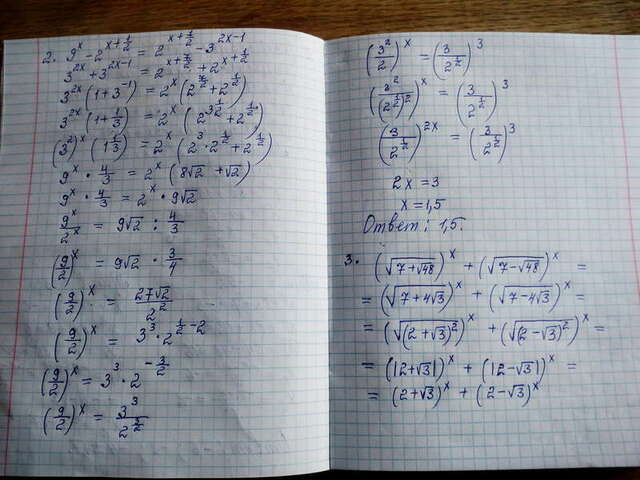 2. 9^x - 2^(x+1/2) = 2^(x+7/2) - 3^(2x-1)
3^(2x) + 3^(2x-1) = 2^(x+7/2) + 2^(x+1/2)
3^(2x) (1 + 3^(-1)) = 2^x (2^(7/2) + 2^(1/2))
3^(2x) (1 + 1/3) = 2^x (2^(3 1/2) + 2^(1/2))
(3^2)^x (1 1/3) = 2^x (2^3 · 2^(1/2) + 2^(1/2))
9^x · 4/3 = 2^x (8√2 + √2)
9^x · 4/3 = 2^x · 9√2
9^x/2^x = 9√2 : 4/3
(9/2)^x = 9√2 · 3/4
(9/2)^x = 27√2/2^2
(9/2)^x = 3^3 · 2^(1/2-2)
(9/2)^x = 3^3 · 2^(-3/2)
(9/2)^x = 3^3/2^(3/2)
(3^2/2)^x = (3/2^(1/2))^3
(3^2/(2^(1/2))^2)^x = (3/2^(1/2))^3
(3/2^(1/2))^(2x) = (3/2^(1/2))^3
2x = 3
x = 1,5
Ответ: 1,5.
3. (√(7+√48))^x + (√(7-√48))^x =
= (√(7+4√3))^x + (√(7-4√3))^x =
= (√((2+√3)^2))^x + (√((2-√3)^2))^x =
= (|2+√3|)^x + (|2-√3|)^x =
= (2+√3)^x + (2-√3)^x